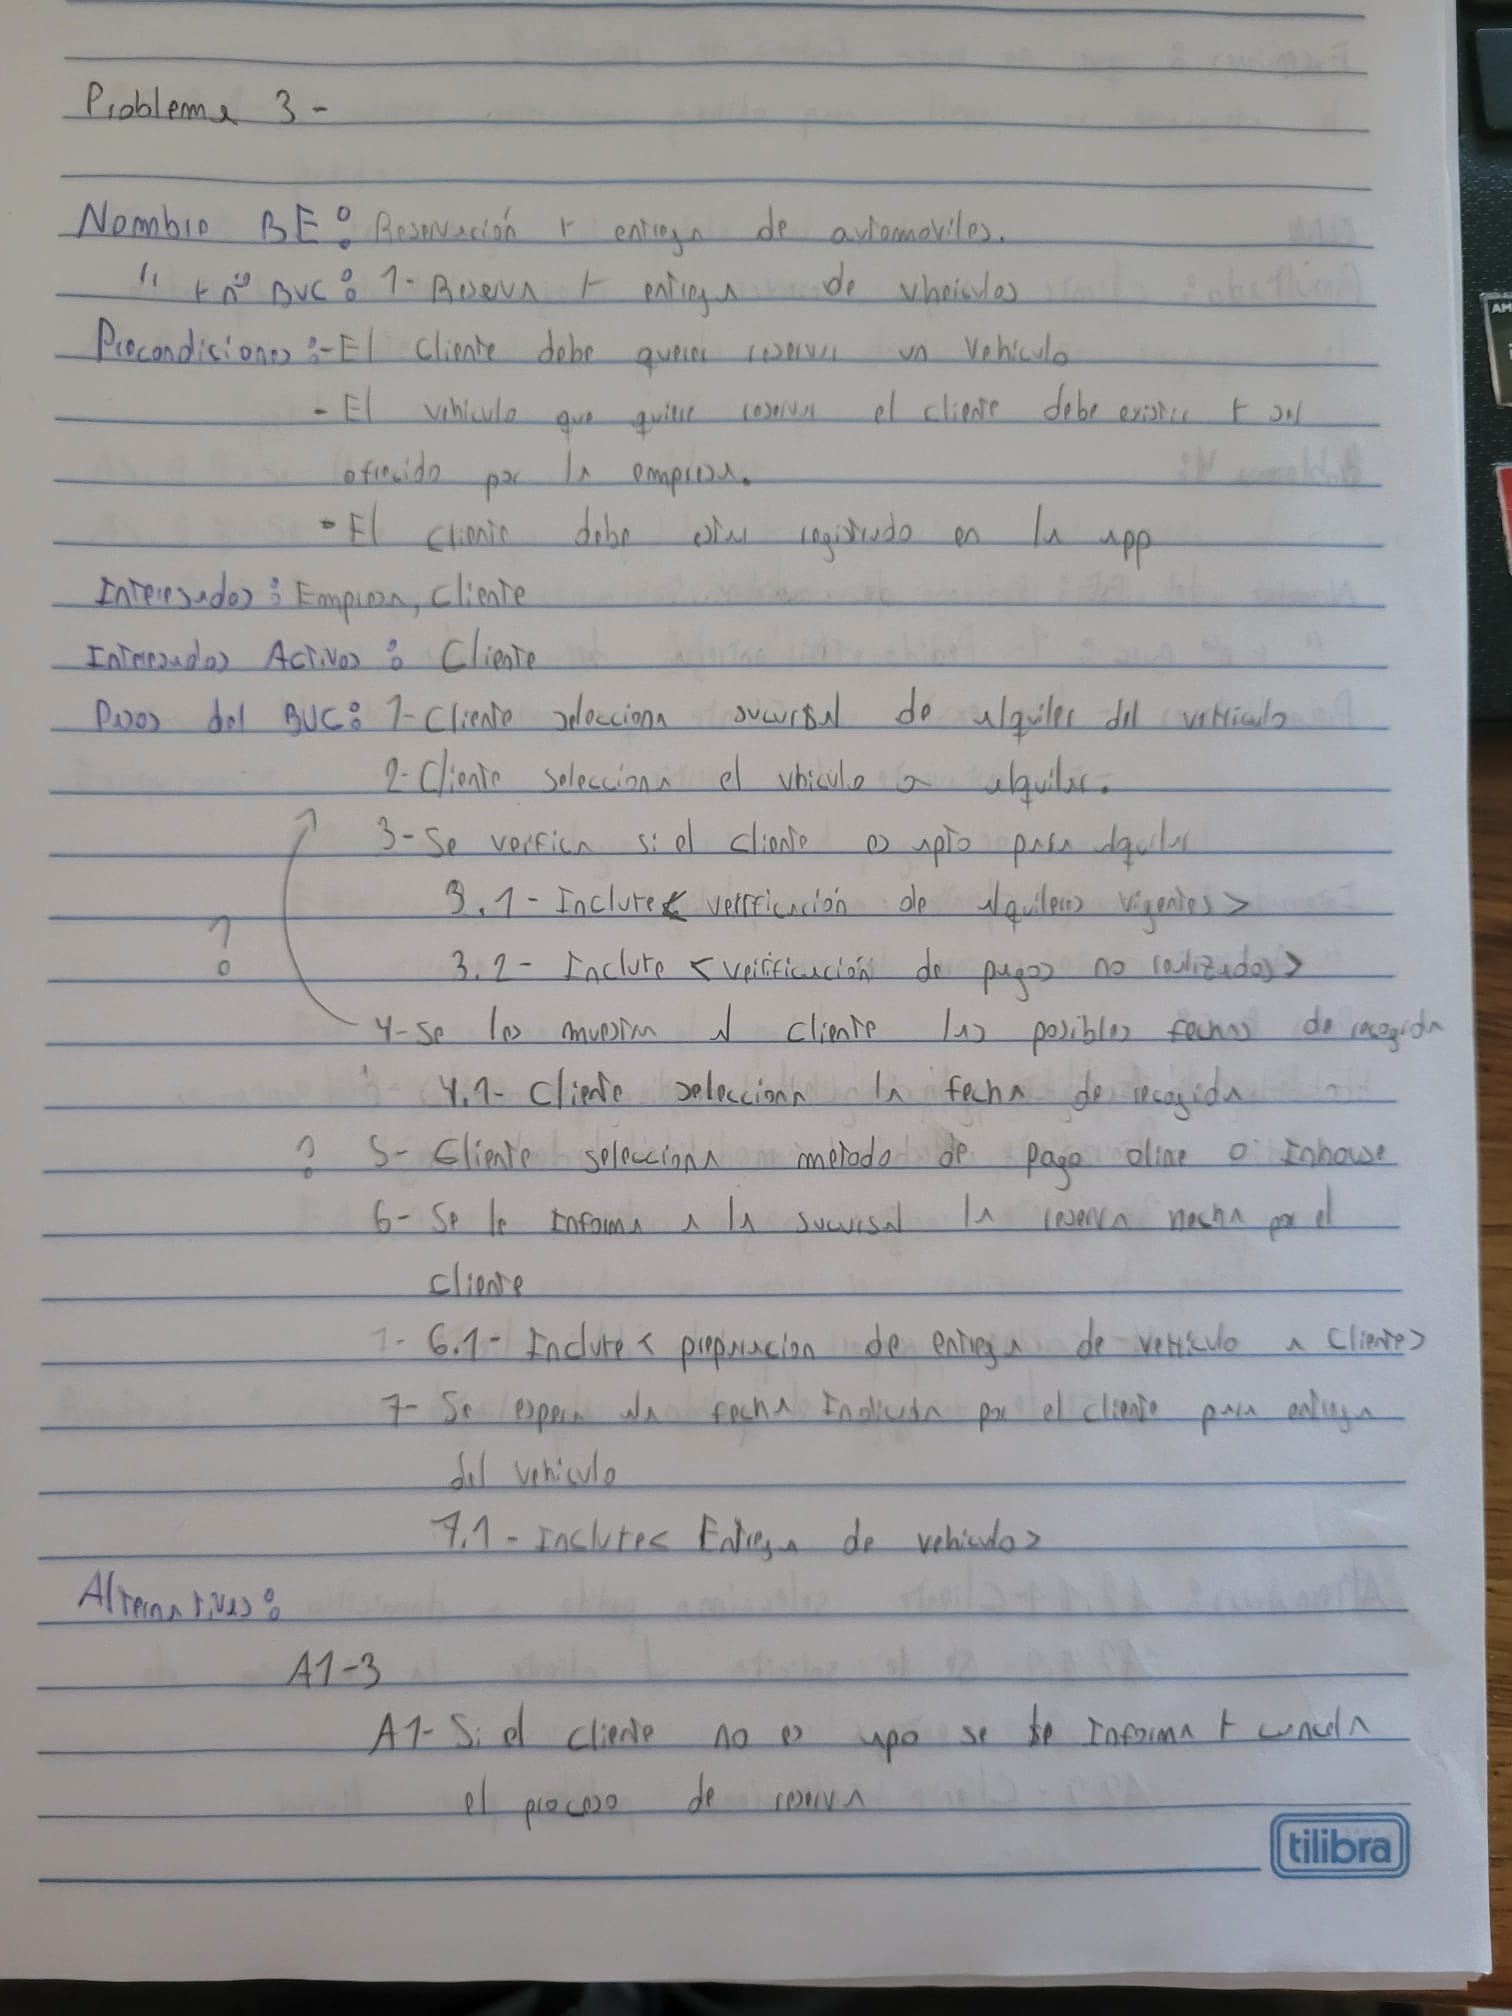 Problema 3 -
Nombre BE: Reservación + entrega de automoviles.
" + nº BUC: 1- Reserva + entrega de vheiculos
Precondiciones: - El cliente debe querer reservar un vehiculo
- El vehiculo que quiere reservar el cliente debe existir + ser
ofrecido por la empresa.
- El cliente debe estar registrado en la app
Interesados: Empresa, Cliente
Interesados Activos: Cliente
Pasos del BUC: 1- Cliente selecciona sucursal de alquiler del vehiculo
2- Cliente selecciona el vhiculo a alquilar.
3- Se verfica si el cliente es apto para alquilar
3.1- Incluye < verificación de alquileres vigentes >
?
3.2- Incluye < verificación de pagos no realizados >
4- Se les muestra al cliente las posibles fechas de recogida
4.1- Cliente selecciona la fecha de recogida
? 5- Cliente selecciona metodo de pago oline o Inhouse
6- Se le informa a la sucursal la reserva hecha por el
cliente
6.1- Incluye < preparacion de entrega de vehiculo a cliente >
7- Se espera la fecha Indicada por el cliente para entrega
del vehiculo
7.1- Incluye < Entrega de vehiculo >
Alternativas:
A1-3
A1- Si el cliente no es apo se le Informa + cancela
el proceso de reserva
tilibra